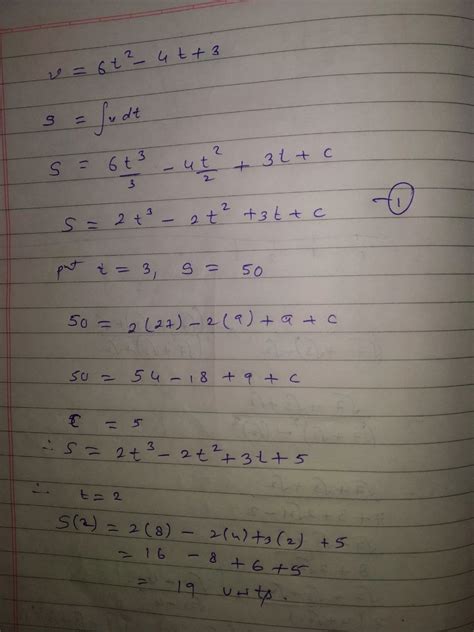 v = 6t² - 4t + 3
s = ∫vdt
S = 6t³/3 - 4t²/2 + 3t + c
S = 2t³ - 2t² + 3t + c —①
put t = 3, S = 50
50 = 2(27) - 2(9) + 9 + c
50 = 54 - 18 + 9 + c
c = 5
∴ S = 2t³ - 2t² + 3t + 5
∴ t = 2
S(2) = 2(8) - 2(4) + 3(2) + 5
= 16 - 8 + 6 + 5
= 19 units.